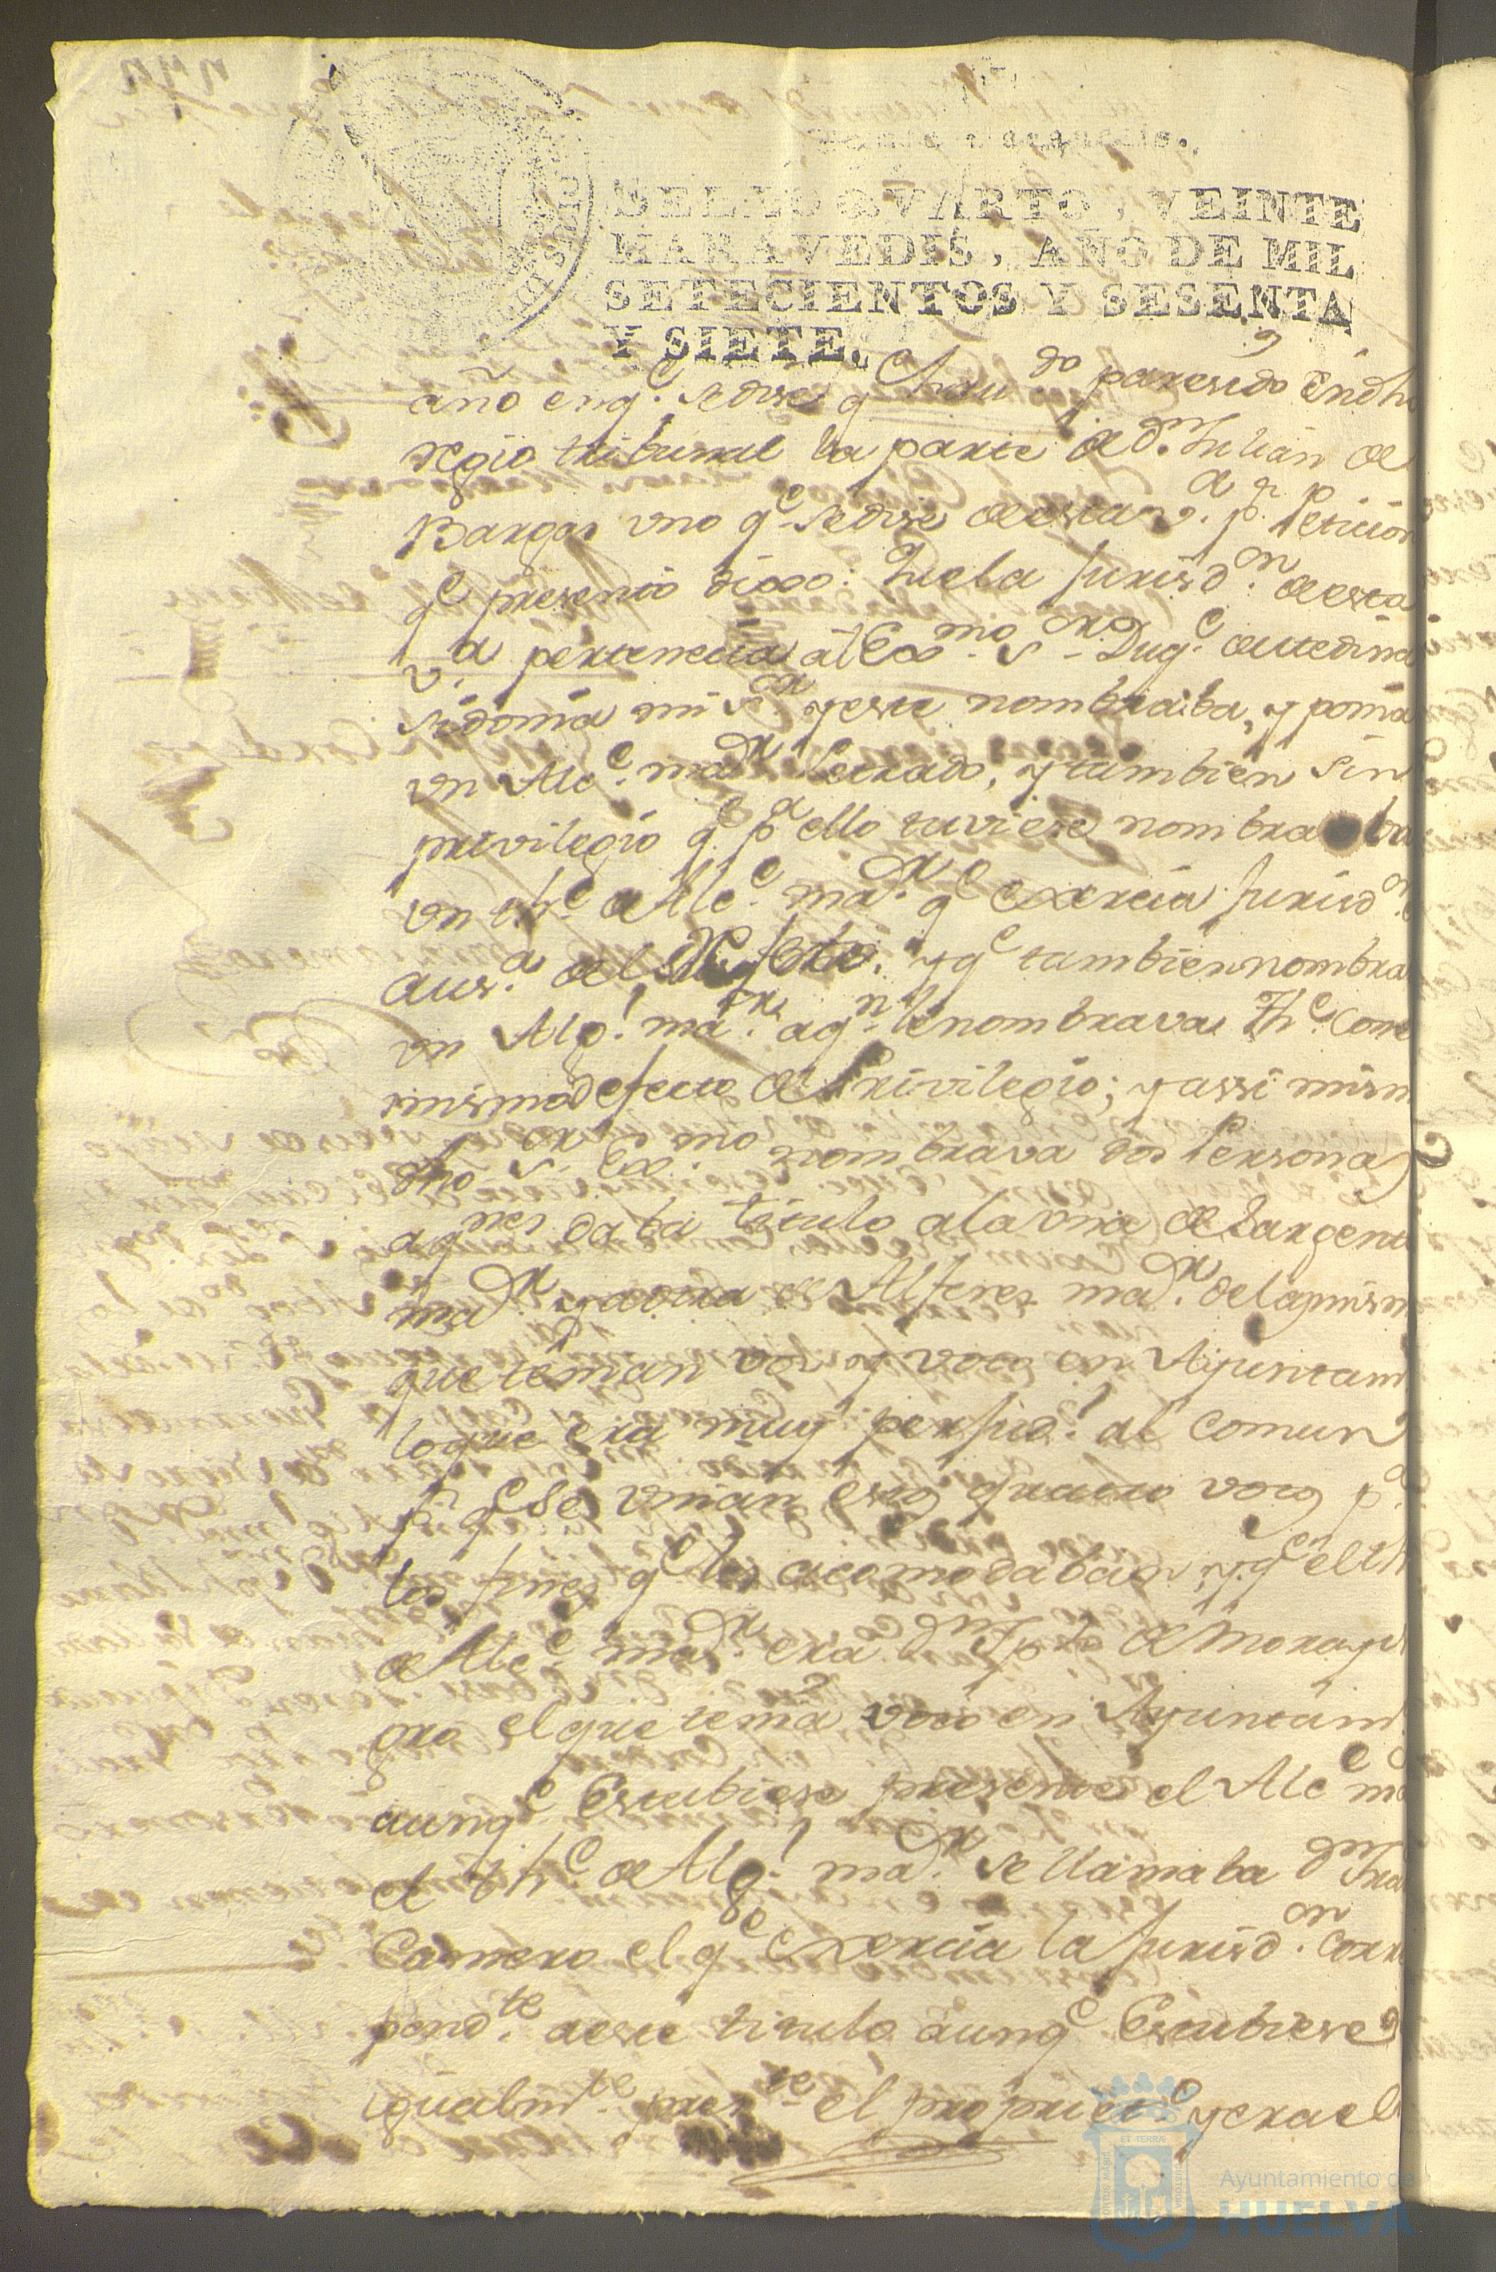 Veinte maravedis.
SELLO QVARTO, VEINTE
MARAVEDIS, AÑO DE MIL
SETECIENTOS Y SESENTA
Y SIETE.
año en q.e se dise q.e haviendo paresido en dho
regio tribunal la parte de d.n Julian de
Bargas vno q.e se dise de esta v.a p.r Peticion
q.e presentó dixo: Que la Jurisd.on de esta
v.a pertenecia al Ex.mo S.or Duq.e de Medina
Sidonia mi S.or y este nombraiba, y ponia
un Alc.e ma.or Letrado, y tambien sin
privilegio q.e p.a ello tuviese nombraba
un th.e de Alc.e ma.or q.e Exercia Jurisd.on
aus.a del y q.e tambien nombra
un Alg.l ma.or a q.n le nombrava Th.e con el
mismo defecto de Privilegio; y assi mism
dho S.or Ex.mo nombrava dos Personas
a q.nes daba titulo a la vna de Sargento
ma.or y a otra de Alferes ma.or de la mism
que tenian vos y voto en Ayuntam
lo que era muy perjud.l al comun
p.r q.e se vnian estos quatro votos p.a
los fines q.e les acomodaban, y q.e el th
de Alc.e ma.or era d.n de Mora y
oro el que tenia voto en Ayuntam
aunq.e Estubiese presente el Alc.e ma
el th.e de Alg.l ma.or se llamaba d.n Fran
Carnero el q.e Exercia la Jurisd.on corr
pond.te a este titulo aunq.e Estubiese
igualm.te pres.te el propriet.o y era el
Ayuntamiento de
HUELVA